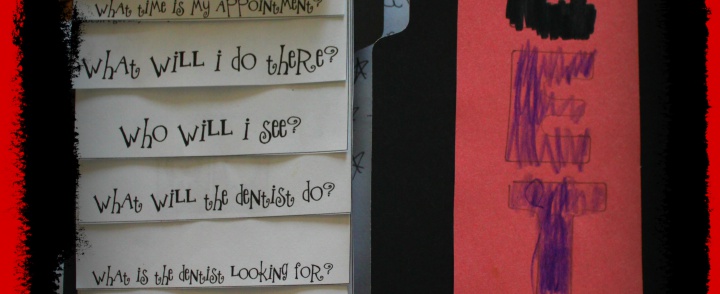 WHAT TIME IS MY APPOINTMENT?
WHAT WILL I DO THERE?
WHO WILL I SEE?
WHAT WILL THE DENTIST DO?
WHAT IS THE DENTIST LOOKING FOR?
E
T